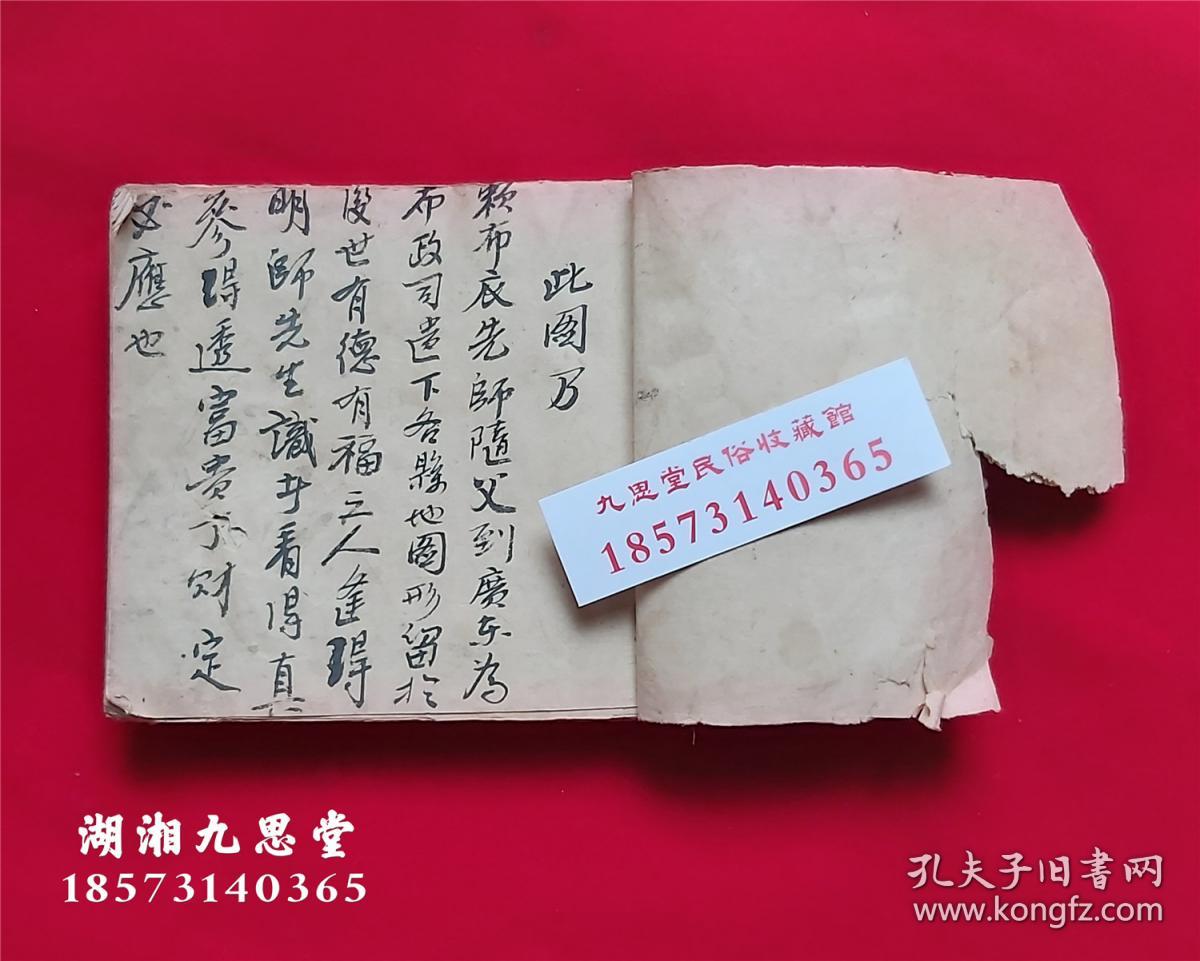 此图乃
赖布衣先師隨父到廣东為
布政司遗下各縣地圖形留於
後世有德有福之人逢得
明師先生識士看得真
參得透富貴丁財定
必應也
九思堂民俗收藏館
18573140365
湖湘九思堂
18573140365
孔夫子旧书网
www.kongfz.com